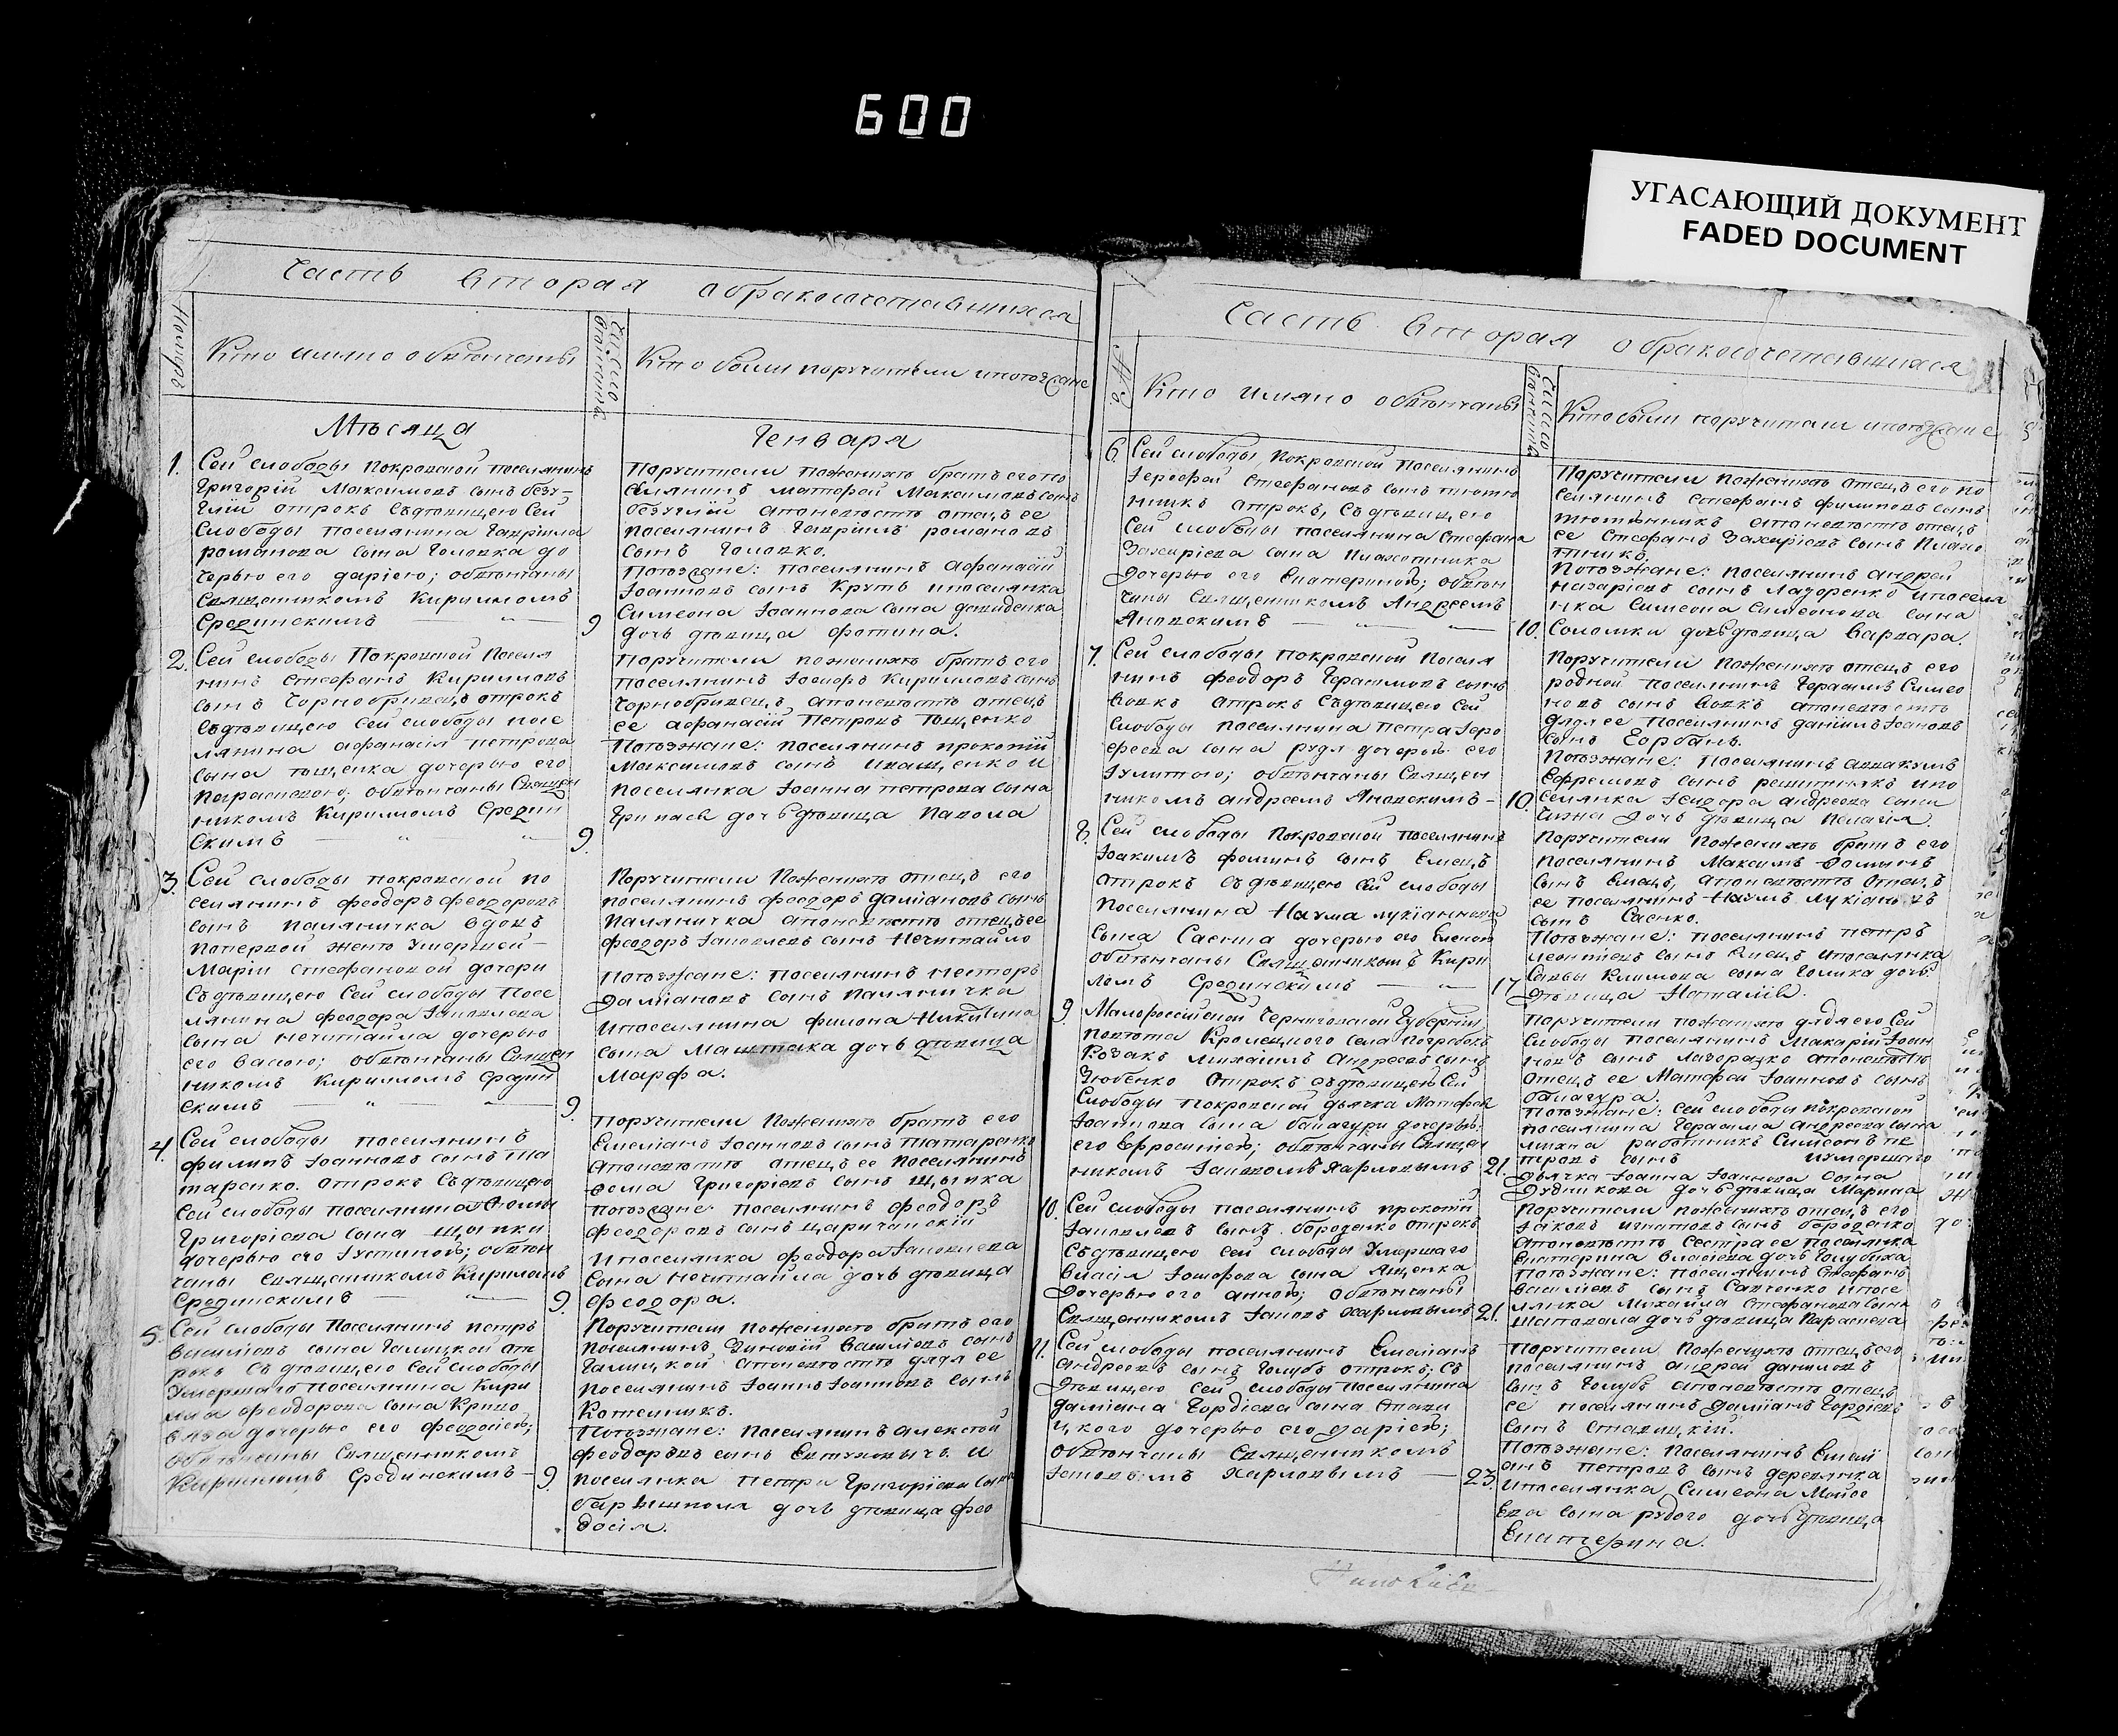 600
УГАСАЮЩИЙ ДОКУМЕНТ
FADED DOCUMENT
Часть вторая обракосочетавшихся
Номеръ
Кто имяно обвенчаны
Число венчанiя
Кто были поручители ипоѣзжане
Мѣсяца
Генваря
1.
Сей слободы покровской поселянинъ
Григорiй Максимовъ сынъ безу-
глiй отрокъ Съдѣвицею Сей
Слободы поселянина Гаврiила
романова сына Головка до
черью его дарiею; обвѣнчаны
Священникомъ Кирилломъ
Срединскимъ
9
Поручители поженихѣ братъ его по
селянинъ матфей Максимовъ сынъ
безуглiй апоневѣстѣ отецъ ее
поселянинъ Гаврiилъ романовъ
сынъ Головко.
Поѣзжане: поселянинъ Афанасiй
Iоанновъ сынъ Круть ипоселянка
Симеона Iоаннова сына давиденка
дочь дѣвица фотина.
2.
Сей слободы Покровской поселя
нинъ стефанъ Кирилловъ
сынъ Чорнобривецъ отрокъ
Съдѣвицею Сей слободы посе
лянина афанасiя петрова
сына тощенка дочерью его
параскевою; обвѣнчаны Священ
никомъ Кирилломъ Средин
скимъ
9.
Поручители поженихѣ братъ его
поселянинъ Iосифъ Кирилловъ сынъ
Чорнобривецъ, апоневѣстѣ отецъ
ее афанасiй Петровъ тощенко
Поѣзжане: поселянинъ прокопiй
Максимовъ сынъ Иващенко и
поселянка Iоанна петрова сына
дочь дѣвица Павола
3.
Сей слободы покровской по
селянинъ феодоръ феодоровъ
сынъ паляничка вдовъ
попервой женѣ Умершей
Марiи Стефановой дочери
Съдѣвицею Сей слободы посе
лянина феодора Iаковлева
сына нечитайла дочерью
его васою; обвѣнчаны Священ
никомъ Кирилломъ Средин
скимъ
9.
Поручители поженихѣ отецъ его
поселянинъ феодоръ дамiановъ сынъ
паляничка апоневѣстѣ отецъ ее
феодоръ Iаковлевъ сынъ Нечитайло
Поѣзжане: поселянинъ несторъ
Дамiановъ сынъ паляничка
ипоселянина филона Никитина
сына Маштака дочь дѣвица
Марфа.
4.
Сей слободы поселянинъ
филипъ Iоанновъ сынъ та
таренко. отрокъ Съдѣвицею
Сей слободы поселянина Фомы
Григорiева сына Щыпки
дочерью его Iустиною; обвѣн
чаны священникомъ Кириломъ
Срединскимъ
9.
Поручители поженихѣ братъ его
Емелiанъ Iоанновъ сынъ татаренко
апоневѣстѣ отецъ ее поселянинъ
Фома Григорiевъ сынъ Щыпка
поѣзжане: поселянинъ феодоръ
феодоровъ сынъ царичанскiй
ипоселянка феодора Iаковлева
сына нечитайла дочь дѣвица
феодора.
5.
Сей слободы поселянинъ петръ
василiевъ сынъ Галицкой от
рокъ Съдѣвицею Сей Слободы
Умершаго поселянина Кири
ла феодорова сына Криво
вяза дочерью его феодосiею;
обвѣнчаны Священникомъ
Кирилломъ Срединскимъ
9.
Поручители поженихѣ братъ его
поселянинъ Зиновiй василiевъ сынъ
Галицкой апоневѣстѣ дядя ее
поселянинъ Iоаннъ Iоанновъ сынъ
Котешникъ.
Поѣзжане: поселянинъ алексѣй
феодоровъ сынъ Евтуховичъ и
поселянка петра Григорiева сына
барышполя дочь дѣвица фео
досiя.
Часть вторая обракосочетавшихся
Кто имяно обвѣнчаны
Число венчанiя
Кто были поручители ипоѣзжане
6.
Сей слободы покровской поселянинъ
Iерофей Стефановъ сынъ тютю
нникъ отрокъ, Съдѣвицею
Сей слободы поселянина Стефана
Захарiева сына Плахотника
дочерью его Екатериною; обвѣн
чаны Священникомъ Андреемъ
Яновскимъ
10.
Поручители поженихѣ отецъ его по
селянинъ стефанъ филиповъ сынъ
тютюнникъ апоневѣстѣ отецъ
ее стефанъ Захарiевъ сынъ Плахо
тникъ.
Поѣзжане: поселянинъ андрей
назарiевъ сынъ Лазоренко ипоселя
нка Симеона Симеонова сына
Соломки дочь дѣвица Варвара.
7.
Сей слободы покровской поселя
нинъ феодоръ Герасимовъ сынъ
Вовкъ отрокъ Съдѣвицею Сей
Слободы поселянина петра Iеро
феева сына рудя дочерью его
Iулитою; обвѣнчаны Священ
никомъ андреемъ Яновскимъ
10.
Поручители поженихѣ отецъ его
родной поселянинъ Герасимъ Симео
новъ сынъ вовкъ апоневѣстѣ
дядя ее поселянинъ данiилъ Iоановъ
сынъ Горбань.
Поѣзжане: поселянинъ аввакумъ
Ефремовъ сынъ решитнякъ ипо
селянка Iсидора андреева сына
дочь дѣвица пелагiя.
8.
Сей слободы покровской поселянинъ
Iоакимъ фоминъ сынъ Емецъ
отрокъ Съдѣвицею Сей слободы
поселянина Наума лукiанова
сына Саенка дочерью его Еленою
обвѣнчаны Священникомъ Кири
ломъ Срединскимъ
17
Поручители поженихѣ братъ его
поселянинъ Максимъ Фоминъ
сынъ Емецъ, апоневѣстѣ отецъ
ее поселянинъ Наумъ лукiановъ
сынъ Саенко.
Поѣзжане: поселянинъ петръ
леонтiевъ сынъ Емецъ ипоселянка
Савы Климова сына Голика дочь
дѣвица Наталiя.
9.
Малороссiйской Черниговской Губернiи
повѣта Кролецкого села погребокъ
Козакъ михаилъ Андреевъ сынъ
Зюбенко отрокъ съдѣвицею Сей
Слободы покровской дьячка Матфея
Iоаннова сына балагури дочерью
его Ефросинiею; обвѣнчаны Священ
никомъ Iаковомъ Харловымъ
21.
Поручители поженихѣ дядя его Сей
слободы поселянинъ Макарiй Iоан
новъ сынъ апоневѣстѣ
Отецъ ее Матфей Iоанновъ сынъ
балагура.
Поѣзжане: Сей слободы покровской
поселянина Герасима андреева сына
работникъ Симеонъ пе
тровъ сынъ иумершаго
дьячка Iоанна Iоаннова сына
Дудникова дочь дѣвица Марина
10.
Сей слободы поселянинъ прокопiй
Iаковлевъ сынъ бароденко отрокъ
Съдѣвицею Сей слободы Умершаго
Власiя Iосифова сына Ященка
дочерью его анною; обвѣнчаны
Священникомъ Iаковъ Харловымъ
21.
Поручители поженихѣ отецъ его
Iаковъ игнатовъ сынъ бароденко
апоневѣстѣ Сестра ее поселянка
Екатерина власiева дочь Голубиха
Поѣзжане: поселянинъ Стефанъ
василiевъ сынъ Савченко ипосе
лянка Михаила Стефанова сына
Шаповала дочь дѣвица Параскева
11.
Сей слободы поселянинъ Емелiанъ
Андреевъ сынъ Голубъ отрокъ; Съ
дѣвицею Сей слободы поселянина
дамiана Гордiева сына Стави
цкого дочерью его дарiею;
обвѣнчаны Священникомъ
Iаковомъ Харловымъ
23.
Поручители поженихѣ отецъ его
поселянинъ андрей даниловъ
сынъ Голубъ апоневѣстѣ отецъ
ее поселянинъ дамiанъ Гордiевъ
сынъ Ставицкiй.
Поѣзжане: поселянинъ Емелi
анъ петровъ сынъ деревянка
ипоселянка Симеона Мойсе
ева сына рудого дочь дѣвица
Екатерина.